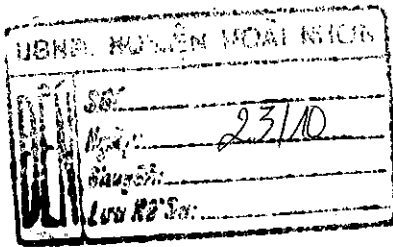 UBND. HUYỆN HOÀI NHƠN
ĐẾN
Số:
Ngày: 23/10
Chuyển:
Lưu Hồ Sơ: